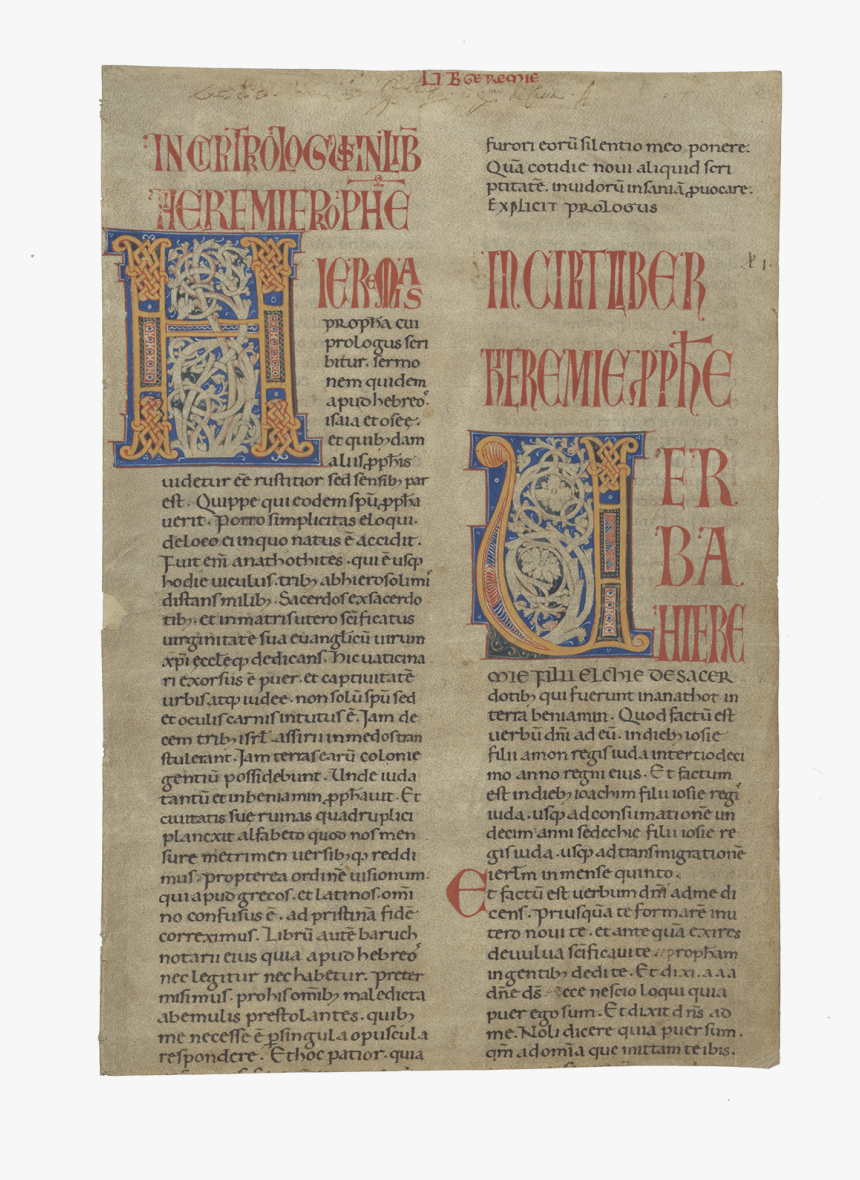 LIB GEREMIE
INCIPIT PROLOGUS IN LIB
HIEREMIE PROPHE
HIEREMIAS
propħa cui
prologus scri
bitur. sermo
nem quidem
apud hebreoˢ.
isaia et osee.
et quibꝰdam
aliis ꝓphis
uidetur eē rustitior sed sensibꝰ par
est. Quippe qui eodem spū ꝓpħa
uerit. Porro simplicitas eloqui.
de loco ei in quo natus ē accidit.
Fuit em̄ anathothites. qui ē usqꝫ
hodie uiculus. tribꝰ ab hierosolimiˢ
distans milibꝰ. Sacerdos ex sacerdo
tibꝰ. et in matris utero sc̄ificatus
uirginitate sua euanglicū uirum
xp̄i eccl̄eqꝫ dedicans. Hic uaticina
ri exorsus ē puer. et captiuitatē
urbis atqꝫ iudee. non solū spū sed
et oculis carnis intutus ē. Iam de
cem tribꝰ isrl̄. assirii in medos tran
stulerant. Iam terras earū colonie
gentiū possidebunt. Unde iuda
tantū et in beniamin ꝓpħauit. Et
ciuitatis sue ruinas quadruplici
planexit alfabeto quod nos men
sure metri men uersibꝰqꝫ reddi
mus. Propterea ordinē uisionum
qui apud grecos. et latinos. omi
no confusus ē. ad pristinā fidē
correximus. Librū autē baruch
notarii eius quia apud hebreoˢ
nec legitur nec habetur. preter
misimus. pro his om̄ibꝰ maledicta
ab emulis prestolantes. quibꝰ
me necesse ē ꝑ singula opuscula
respondere. Et hoc patior. quia
furori eorū silentio meo ponere.
Quā cotidie noui aliquid scri
ptitatē. inuidorū insaniā ꝓuocare.
Explicit prologus
INCIPIT LIBER
HIEREMIE ꝓPHE
UERBA HIERE
MIE FILII ELCHIE DE SACER
dotibꝰ qui fuerunt in anathot in
terra beniamin. Quod factū est
uerbū dn̄i ad eū. in diebꝰ iosie
filii amon regis iuda in tertio deci
mo anno regni eius. Et factum
est in diebꝰ ioachim filii iosie regiˢ
iuda. usqꝫ ad consumationē un
decim anni sedechie filii iosie re
gis iuda. usqꝫ ad transmigrationē
ierl̄m in mense quinto.
Et factū est uerbum dn̄i ad me di
cens. Priusquā te formarē in u
tero noui te. et ante quā exires
de uulua sc̄ificaui te. propħam
in gentibꝰ dedi te. Et dixi. a a a
dn̄e ds̄ ecce nescio loqui quia
puer ego sum. Et dixit dn̄s ad
me. Noli dicere quia puer sum.
qm̄ ad om̄ia que mittam te ibis.